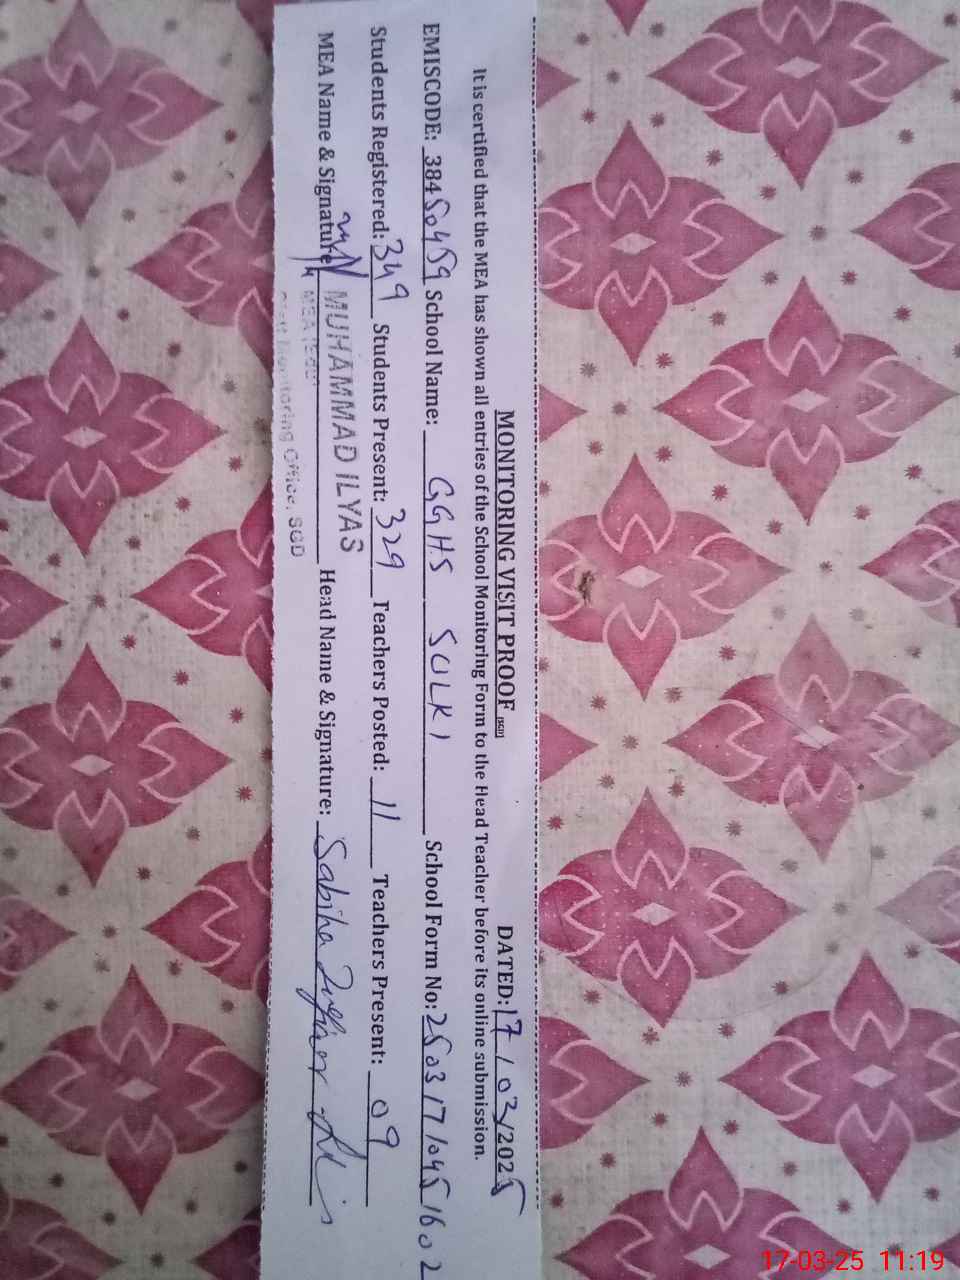 MONITORING VISIT PROOF (SGD) DATED: 17/03/2025
It is certified that the MEA has shown all entries of the School Monitoring Form to the Head Teacher before its online submission.
EMISCODE: 38450459 School Name: GGHS SULKI School Form No: 2503171045 1602
Students Registered: 349 Students Present: 329 Teachers Posted: 11 Teachers Present: 09
MEA Name & Signature MUHAMMAD ILYAS Head Name & Signature: Sabiha
Monitoring Office, SGD
17-03-25 11:19